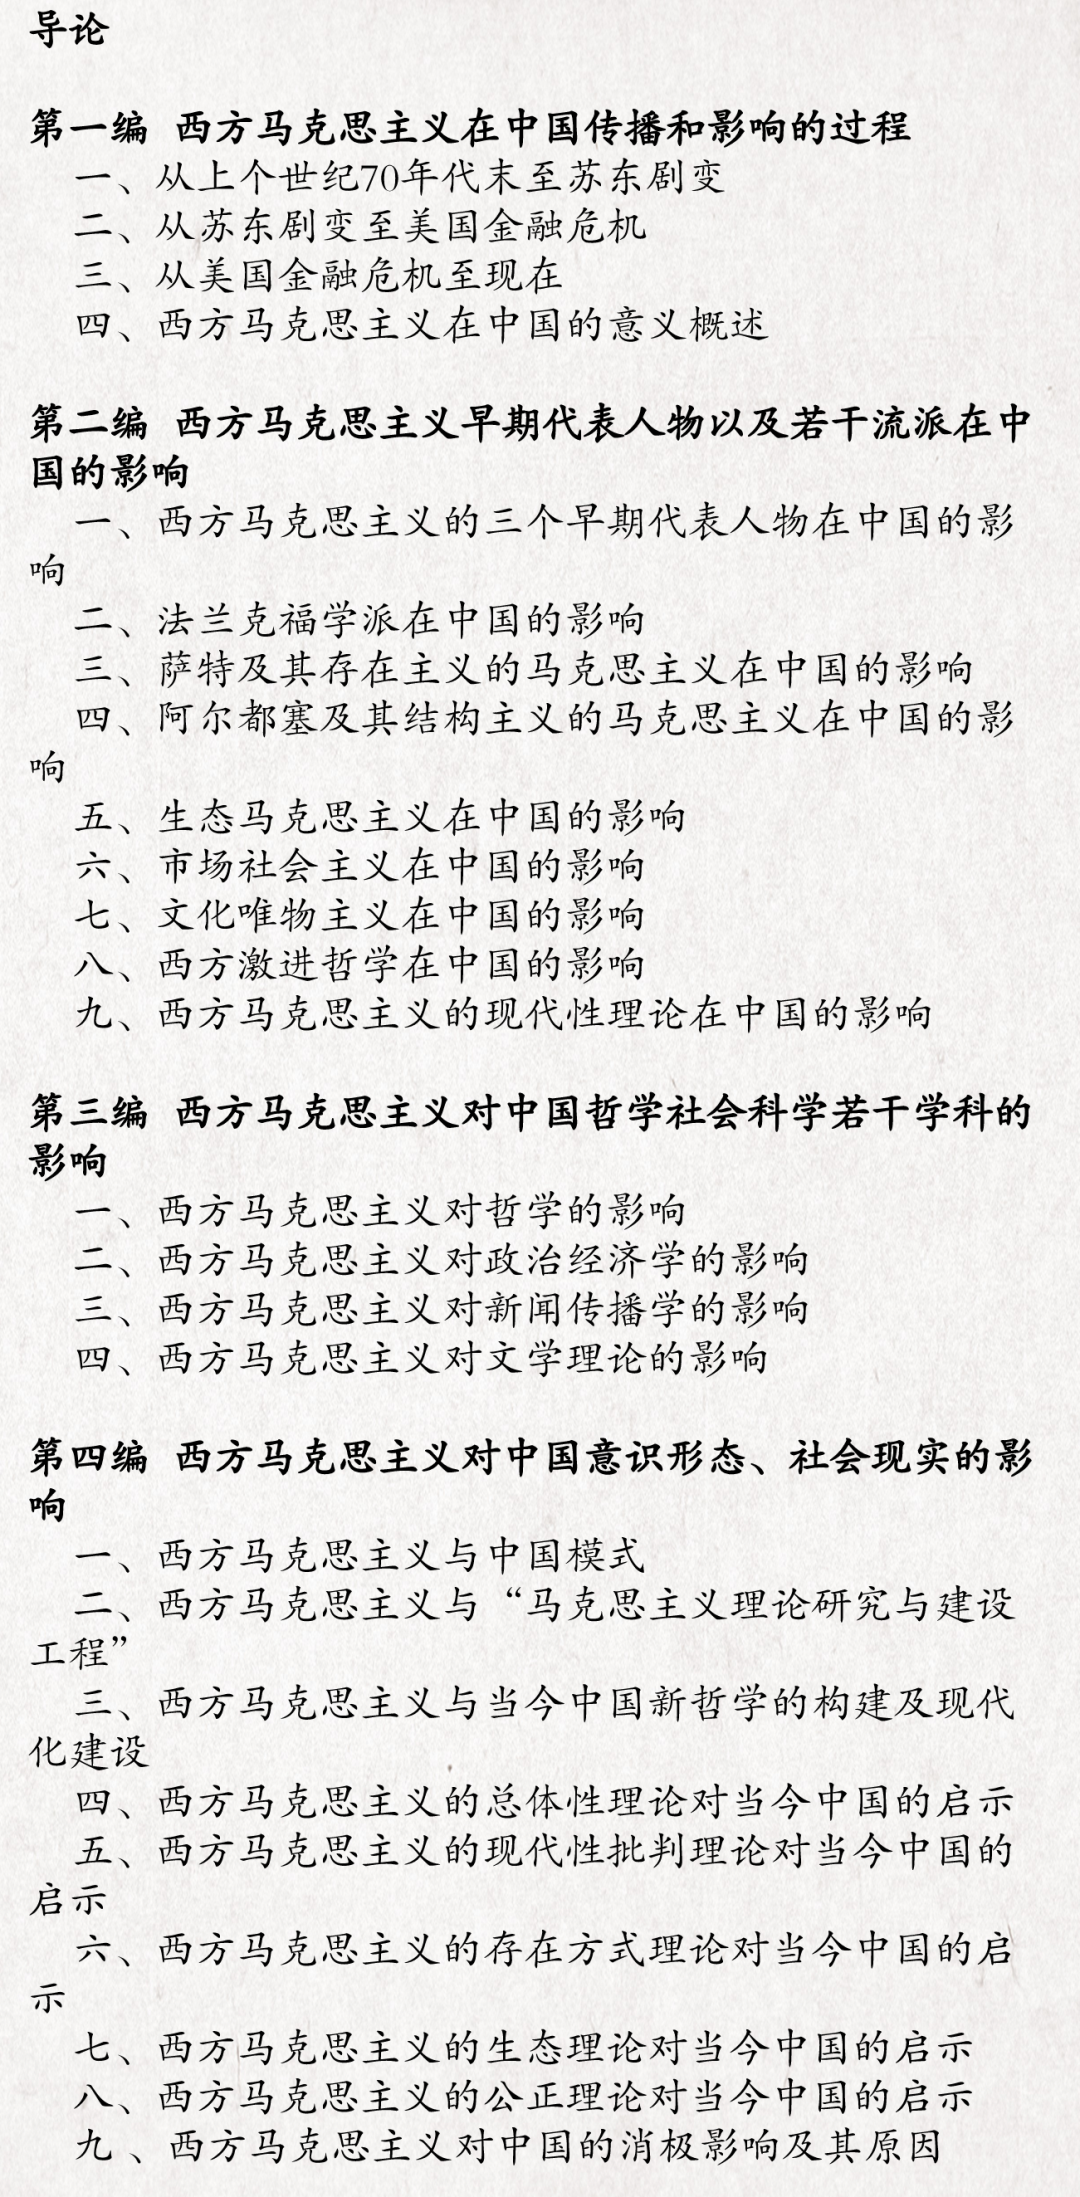 导论
第一编 西方马克思主义在中国传播和影响的过程
一、从上个世纪70年代末至苏东剧变
二、从苏东剧变至美国金融危机
三、从美国金融危机至现在
四、西方马克思主义在中国的意义概述
第二编 西方马克思主义早期代表人物以及若干流派在中
国的影响
一、西方马克思主义的三个早期代表人物在中国的影
响
二、法兰克福学派在中国的影响
三、萨特及其存在主义的马克思主义在中国的影响
四、阿尔都塞及其结构主义的马克思主义在中国的影
响
五、生态马克思主义在中国的影响
六、市场社会主义在中国的影响
七、文化唯物主义在中国的影响
八、西方激进哲学在中国的影响
九、西方马克思主义的现代性理论在中国的影响
第三编 西方马克思主义对中国哲学社会科学若干学科的
影响
一、西方马克思主义对哲学的影响
二、西方马克思主义对政治经济学的影响
三、西方马克思主义对新闻传播学的影响
四、西方马克思主义对文学理论的影响
第四编 西方马克思主义对中国意识形态、社会现实的影
响
一、西方马克思主义与中国模式
二、西方马克思主义与“马克思主义理论研究与建设
工程”
三、西方马克思主义与当今中国新哲学的构建及现代
化建设
四、西方马克思主义的总体性理论对当今中国的启示
五、西方马克思主义的现代性批判理论对当今中国的
启示
六、西方马克思主义的存在方式理论对当今中国的启
示
七、西方马克思主义的生态理论对当今中国的启示
八、西方马克思主义的公正理论对当今中国的启示
九、西方马克思主义对中国的消极影响及其原因